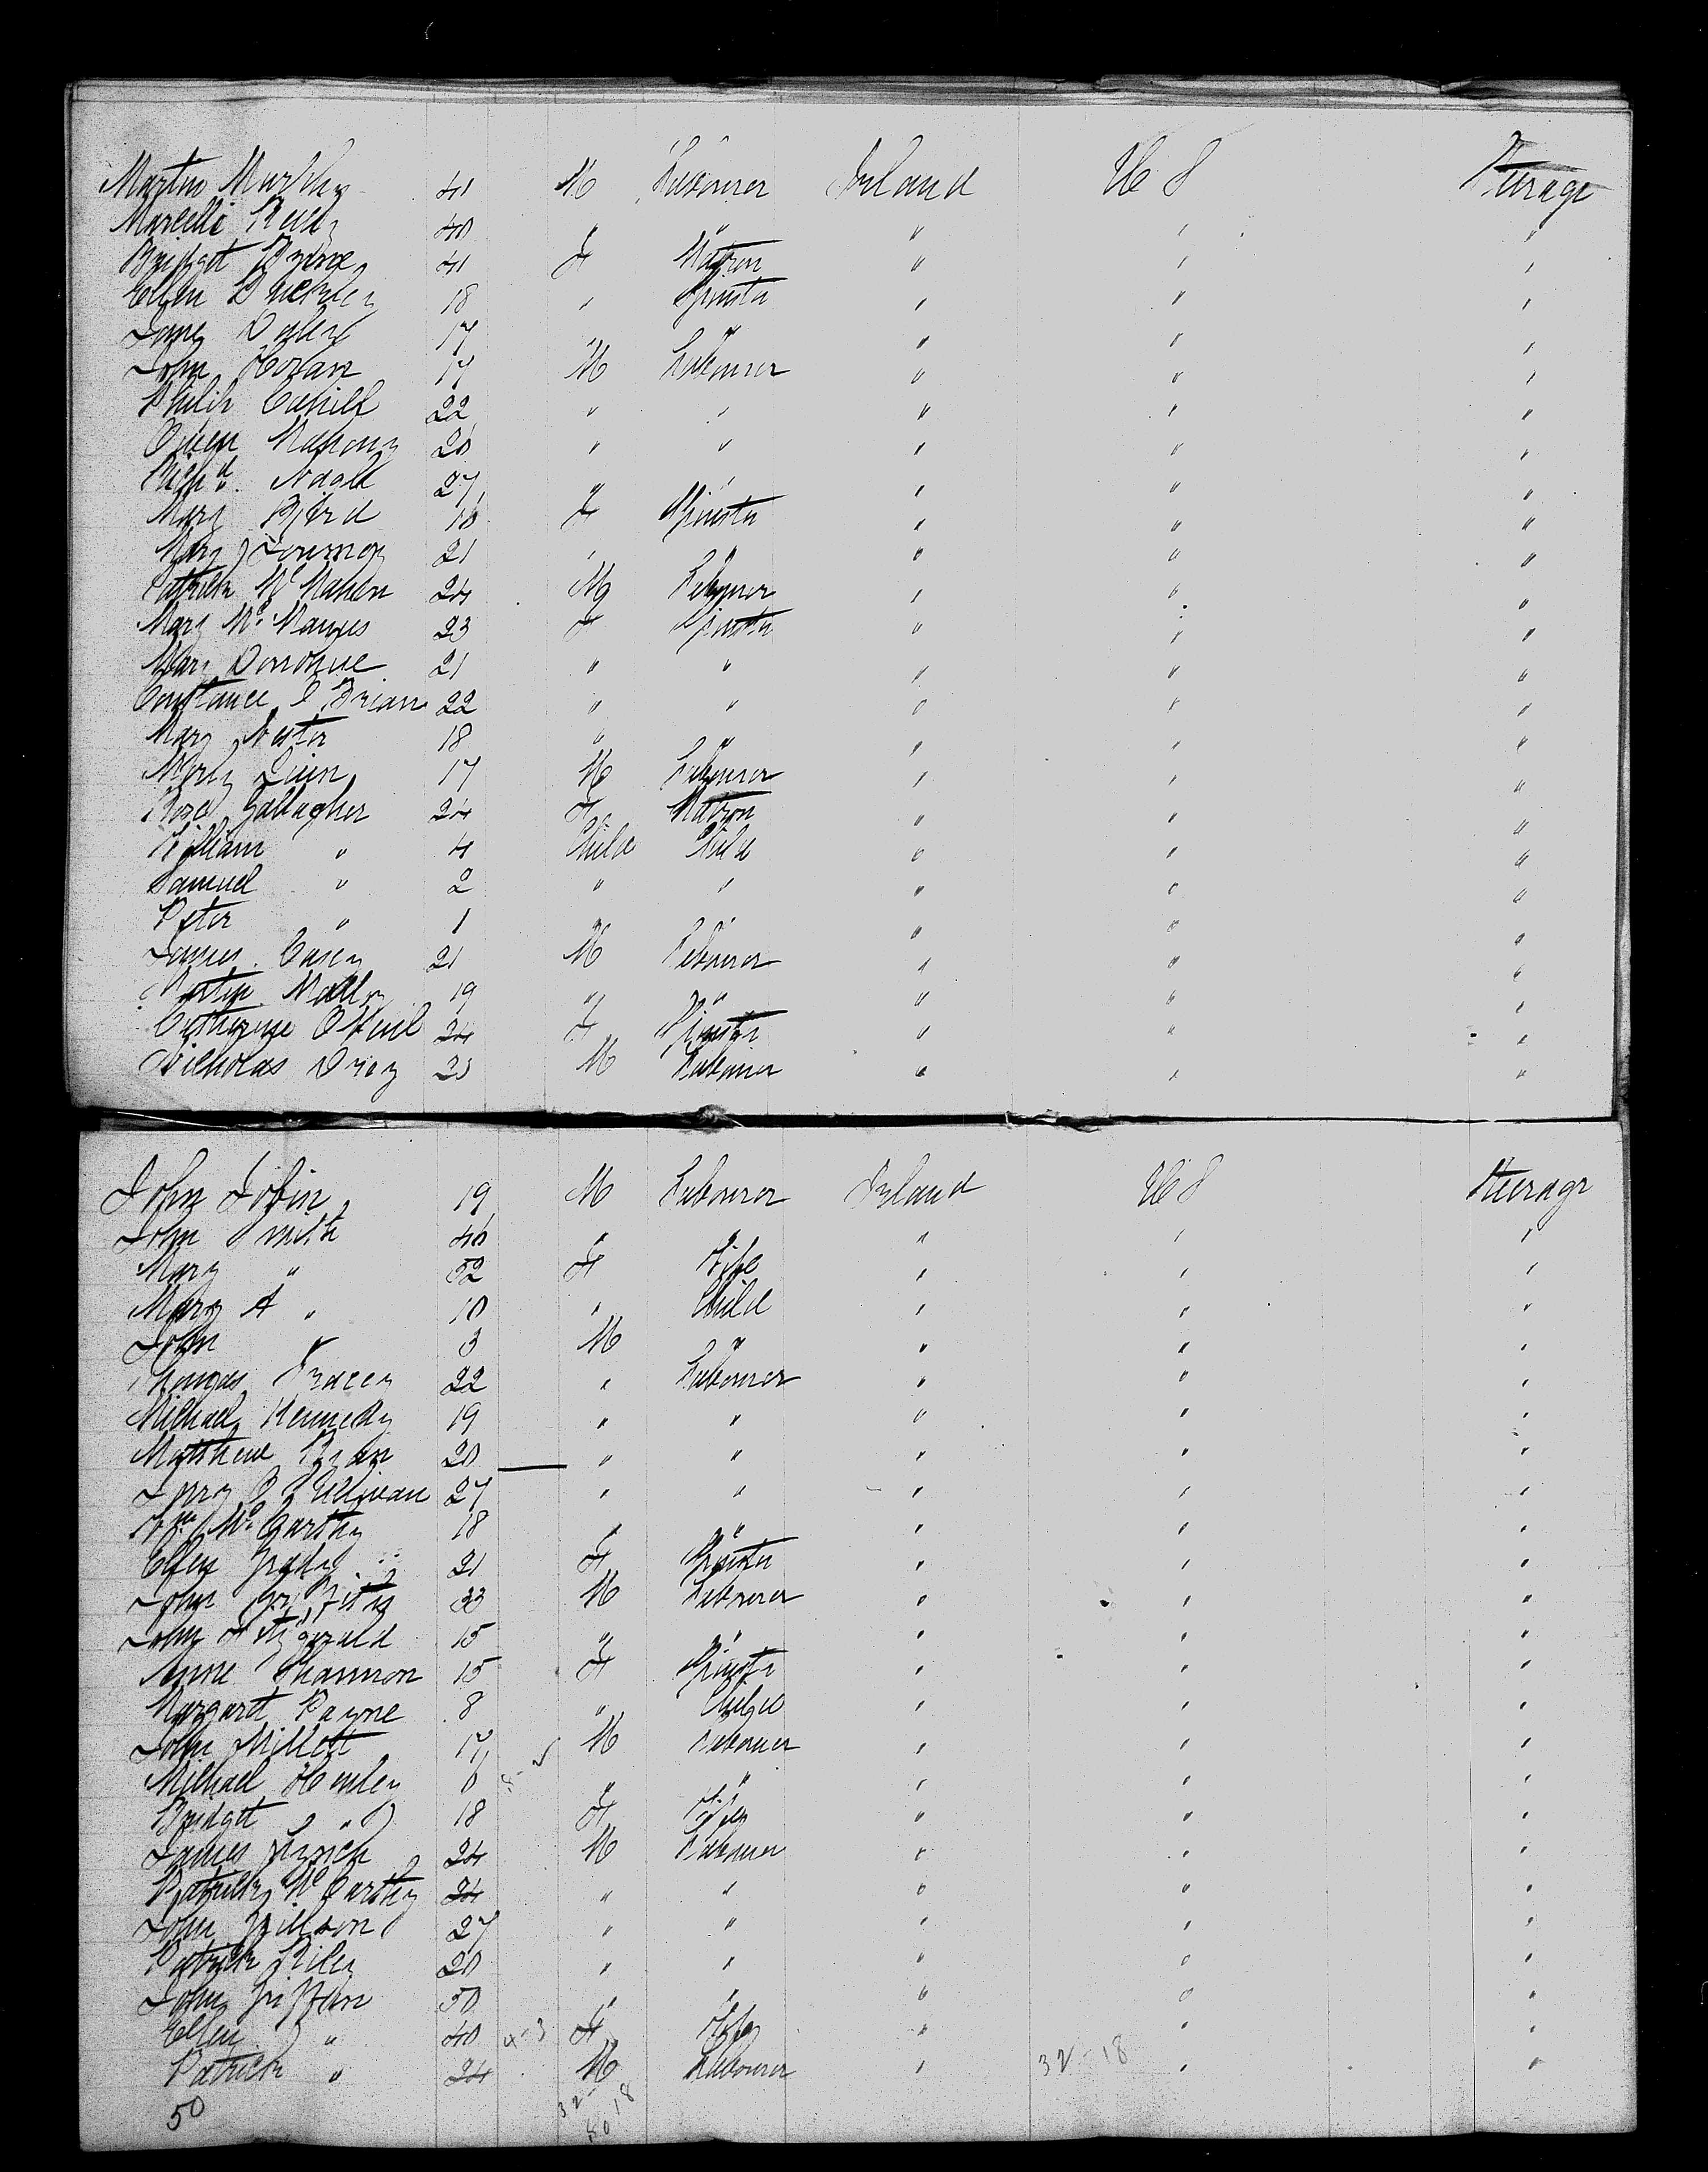 Martin Murphy 41 M Labourer Ireland U S Steerage
Marcella Reily 40 " " " " "
Bridget Byrne 41 F Matron " " "
Ellen 18 " Spinster " " "
Daly 17 " " " " "
John Horan 17 M Labourer " " "
Philip Cahill 22 " " " " "
Owen Mahony 20 " " " " "
Richd. 27 " " " " "
Mary 18 F Spinster " " "
Mary 21 " " " " "
Patrick McMahon 24 M Labourer " " "
Mary McManus 23 F Spinster " " "
Mary Donohue 21 " " " " "
Constance O Brian 22 " " " " "
Mary Nester 18 " " " " "
Quin 17 M Labourer " " "
Rose Gallagher 24 F Matron " " "
William " 4 Child Child " " "
Samuel " 2 " " " " "
Peter " 1 " " " " "
James Casey 21 M Labourer " " "
Martin Malley 19 " " " " "
Catherine O'Neil 24 F Spinster " " "
Nicholas 23 M Labourer " " "
John Tobin 19 M Labourer Ireland U S Steerage
John Smith 46 " " " " "
Mary " 52 F Wife " " "
Mary A " 10 " Child " " "
John " 3 M " " " "
Thomas Tracey 22 " Labourer " " "
Michael Kennedy 19 " " " " "
Matthew Ryan 20 " " " " "
O'Sullivan 27 " " " " "
Wm McCarthy 18 " " " " "
Ellen Grady 21 F Spinster " " "
John Griffiths 33 M Labourer " " "
John Fitzgerald 15 " " " " "
Anne Shannon 15 F Spinster " " "
Margaret Payne 8 " Child " " "
John Millett 17 M Labourer " " "
Michael Henley " " " " "
Bridget " 18 F Wife " " "
James Lynch 24 M Labourer " " "
Patrick McCarthy 24 " " " " "
John 27 " " " " "
Patrick Riley 20 " " " " "
John Griffin 50 " " " " "
Ellen " 40 4-3 F Wife " " "
Patrick " 24 M Labourer " 32-18 " "
50 32-18